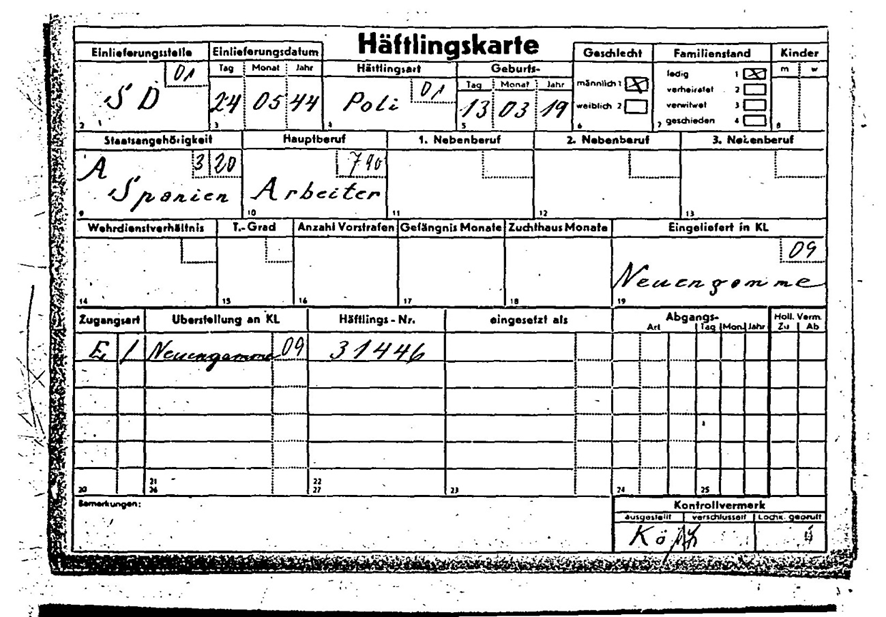 Häftlingskarte
Einlieferungsstelle Einlieferungsdatum Häftlingsart Geburts- Geschlecht Familienstand Kinder
Tag Monat Jahr Tag Monat Jahr m w
01 01
SD 24 05 44 Poli 13 03 19
männlich 1 ☒ ledig 1 ☒
verheiratet 2 ☐
weiblich 2 ☐ verwitwet 3 ☐
geschieden 4 ☐
2 3 4 5 6 7 8
Staatsangehörigkeit Hauptberuf 1. Nebenberuf 2. Nebenberuf 3. Nebenberuf
A 3 20 790
Spanien Arbeiter
9 10 11 12 13
Wehrdienstverhältnis T.-Grad Anzahl Vorstrafen Gefängnis Monate Zuchthaus Monate Eingeliefert in KL
09
Neuengamme
14 15 16 17 18 19
Zugangsart Überstellung an KL Häftlings-Nr. eingesetzt als Abgangs- Holl. Verm.
Art Tag Mon. Jahr Zu Ab
E 1 Neuengamme 09 31446
21 22
20 26 27 23 24 25
Bemerkungen: Kontrollvermerk
ausgestellt verschlüsselt Lochk. geprüft